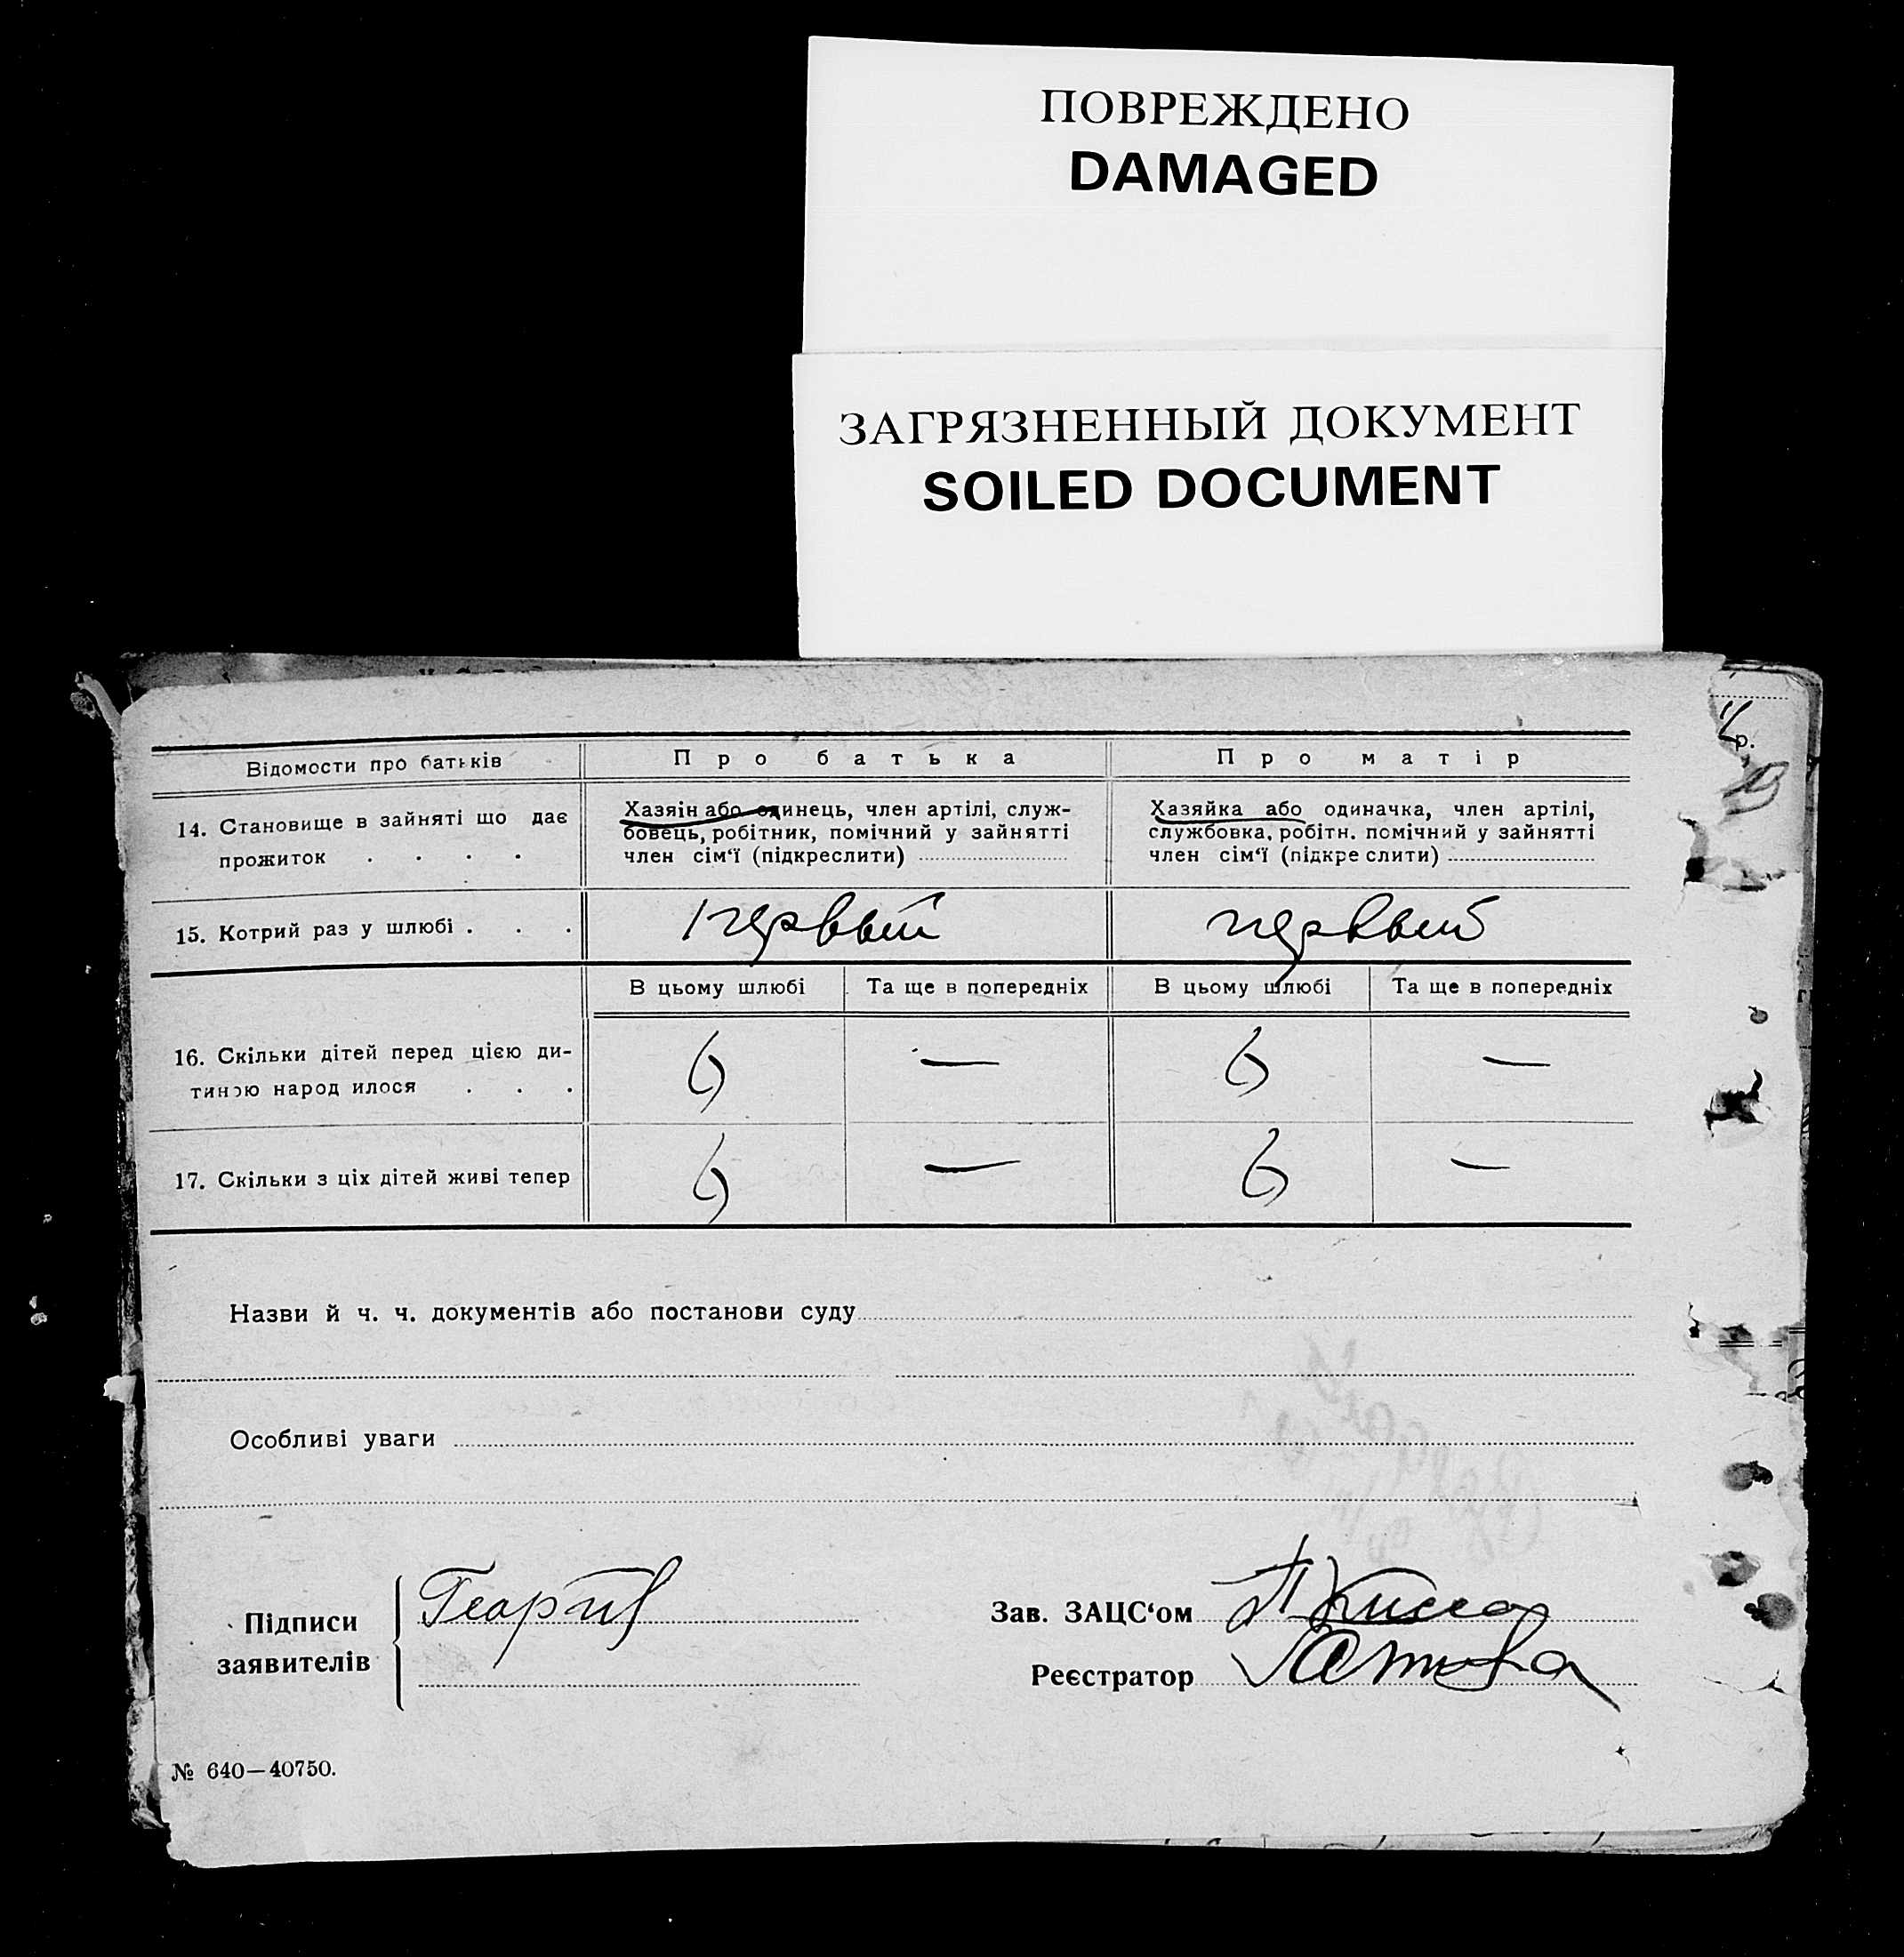 ПОВРЕЖДЕНО
DAMAGED
ЗАГРЯЗНЕННЫЙ ДОКУМЕНТ
SOILED DOCUMENT
р.
Відомости про батьків
Про батька
Про матір
14. Становище в зайняті що дає
прожиток . . . .
Хазяін або одинець, член артілі, служ-
бовець, робітник, помічний у зайнятті
член сім‘ї (підкреслити)
Хазяйка або одиначка, член артілі,
службовка, робітн. помічний у зайнятті
член сім‘ї (підкреслити)
15. Котрий раз у шлюбі . . .
первый
первый
В цьому шлюбі
Та ще в попередніх
В цьому шлюбі
Та ще в попередніх
16. Скільки дітей перед цією ди-
тиною народилося . . .
6
—
6
—
17. Скільки з ціх дітей живі тепер
6
—
6
—
Назви й ч. ч. документів або постанови суду
Особливі уваги
Підписи
заявителів
Зав. ЗАЦС‘ом
Реєстратор
№ 640—40750.